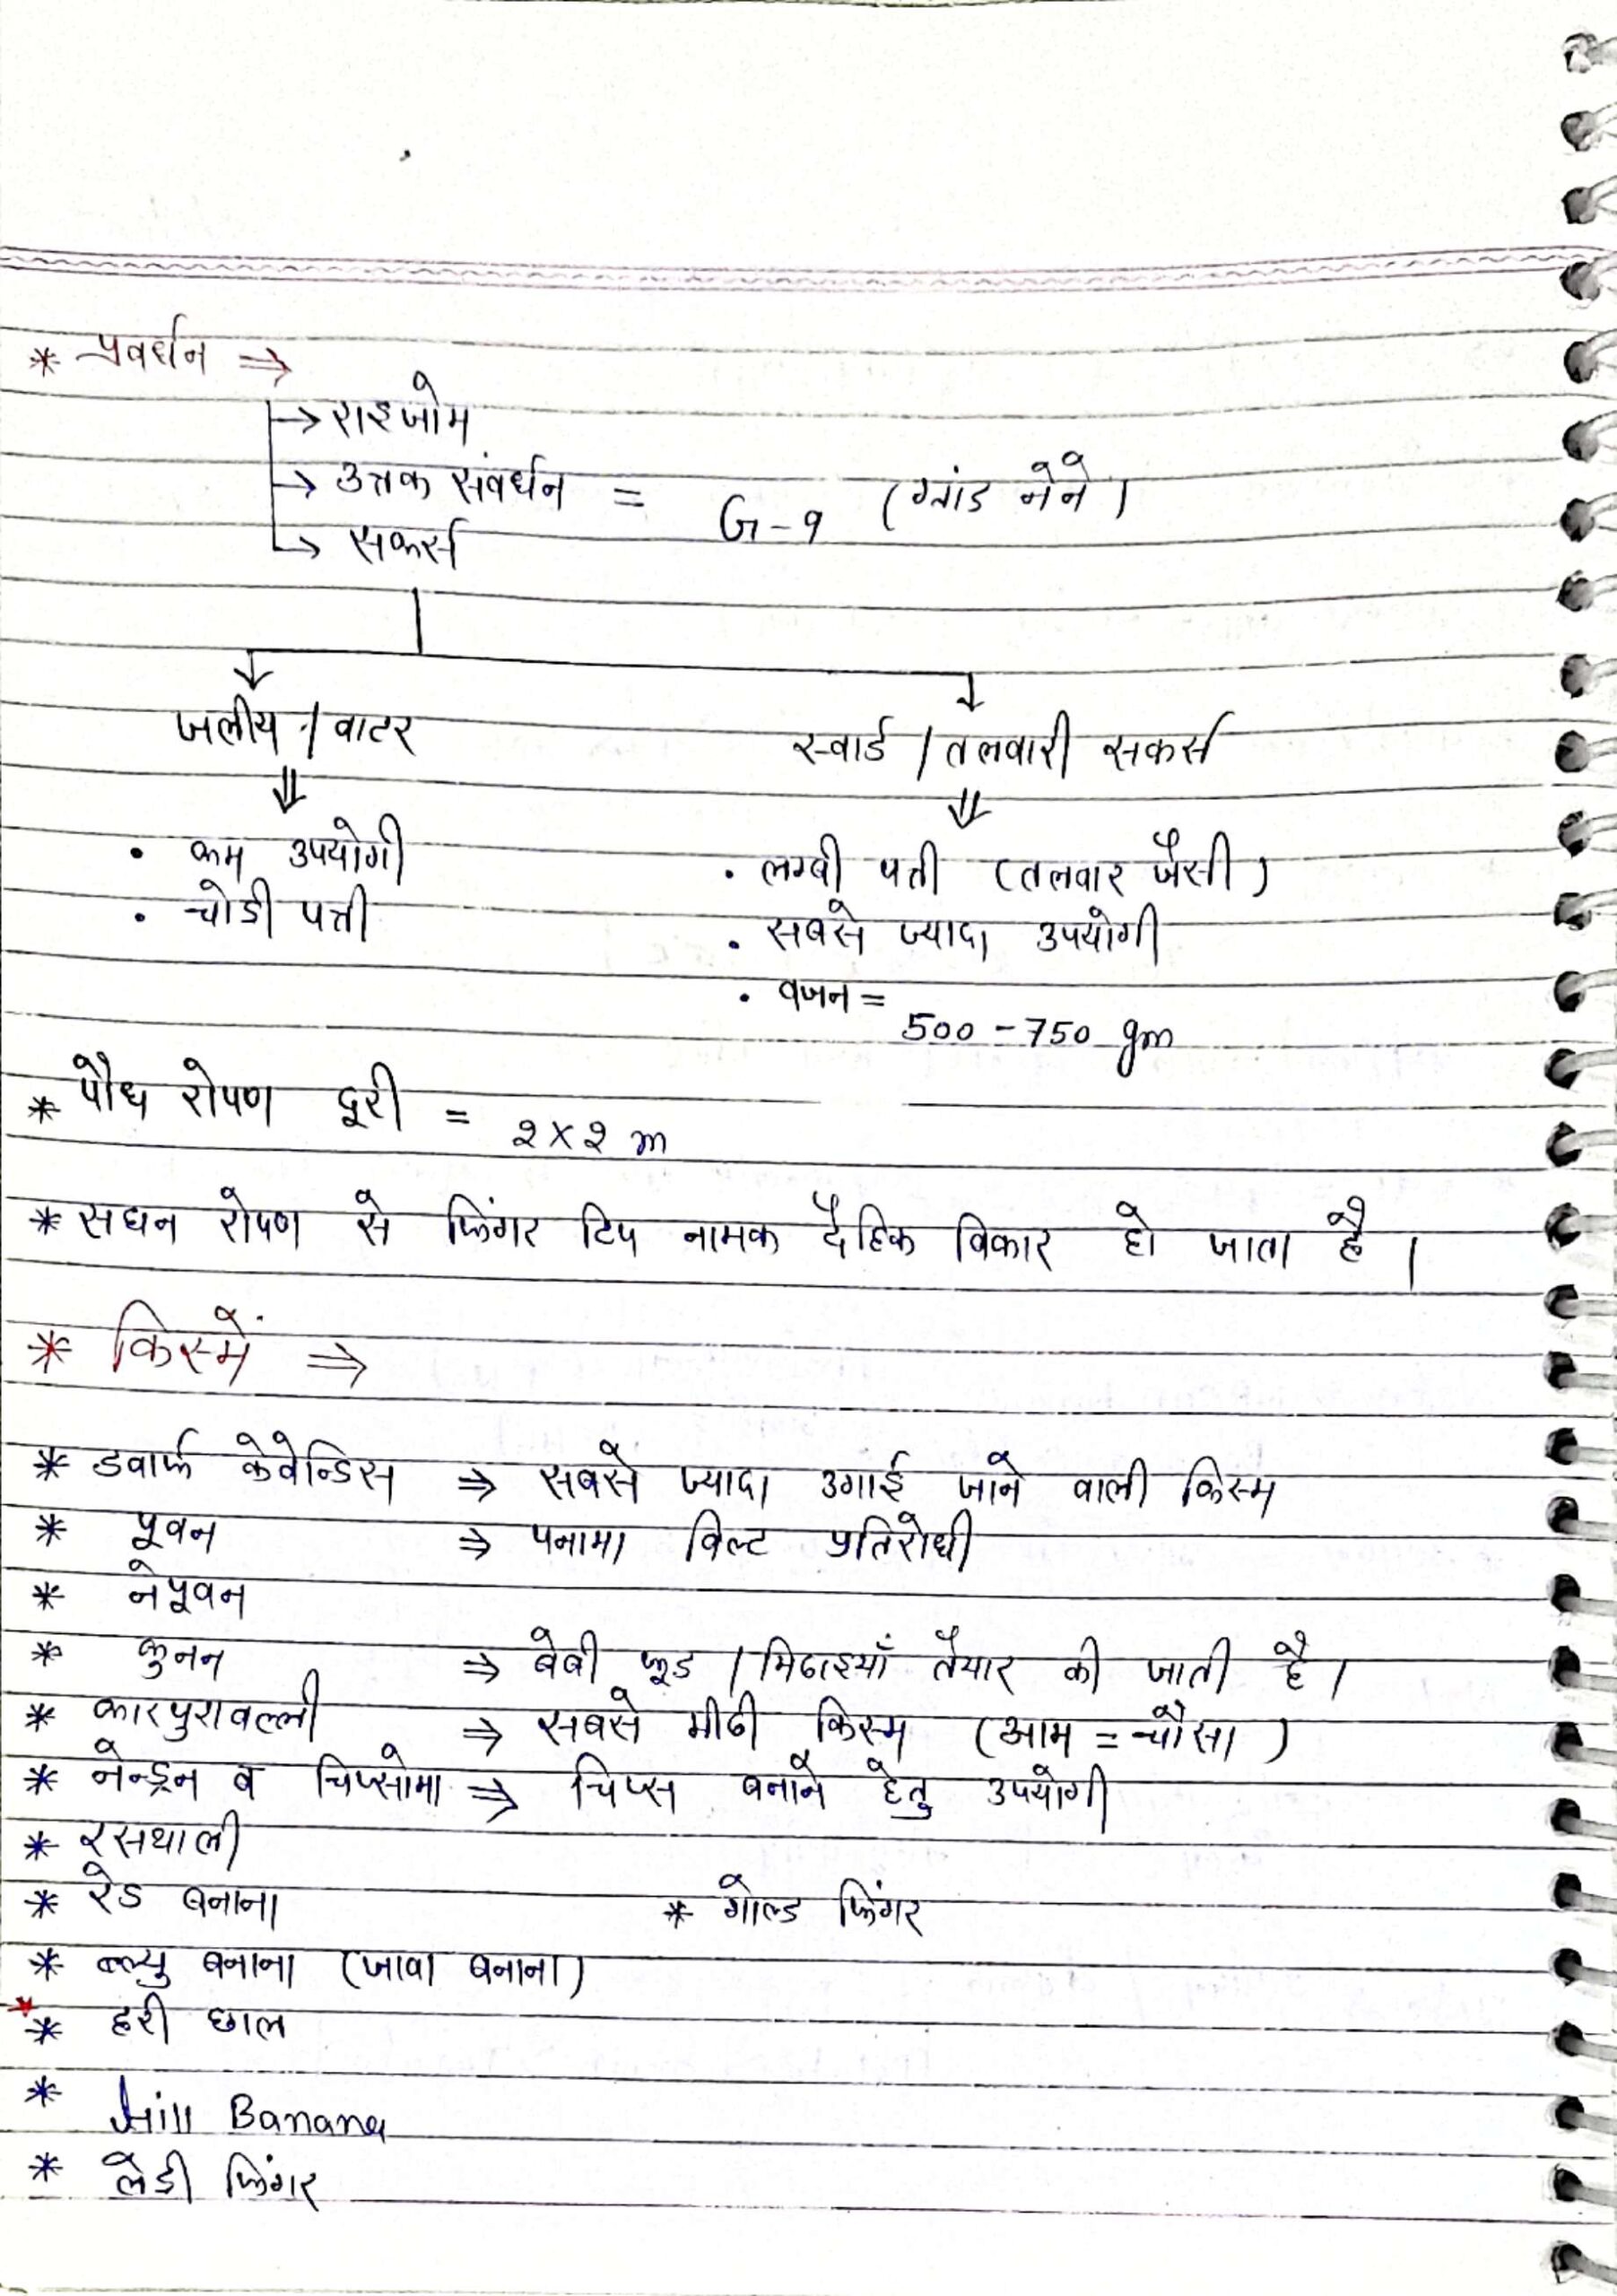 * प्रवर्धन ⇒
→ राइजोम
→ उत्तक संवर्धन = G-9 (ग्रांड नेने)
→ सकर्स
जलीय / वाटर    स्वार्ड / तलवारी सकर्स
• कम उपयोगी    • लम्बी पत्ती (तलवार जैसी)
• चोडी पत्ती    • सबसे ज्यादा उपयोगी
• वजन = 500 - 750 gm
* पौध रोपण दूरी = 2 x 2 m
* सघन रोपण से फिंगर टिप नामक दैहिक विकार हो जाता है ।
* किस्में ⇒
* डवार्फ केवेन्डिस ⇒ सबसे ज्यादा उगाई जाने वाली किस्म
* पूवन ⇒ पनामा विल्ट प्रतिरोधी
* नेपूवन
* कुनन ⇒ बेबी फूड / मिठाइयाँ तैयार की जाती है ।
* कारपुरावल्ली ⇒ सबसे मीठी किस्म (आम = चौसा)
* नेन्ड्रन व चिप्सोमा ⇒ चिप्स बनाने हेतु उपयोगी
* रसथाली
* रेड बनाना    * गोल्ड फिंगर
* ब्ल्यु बनाना (जावा बनाना)
* हरी छाल
* Hill Banana
* लेडी फिंगर